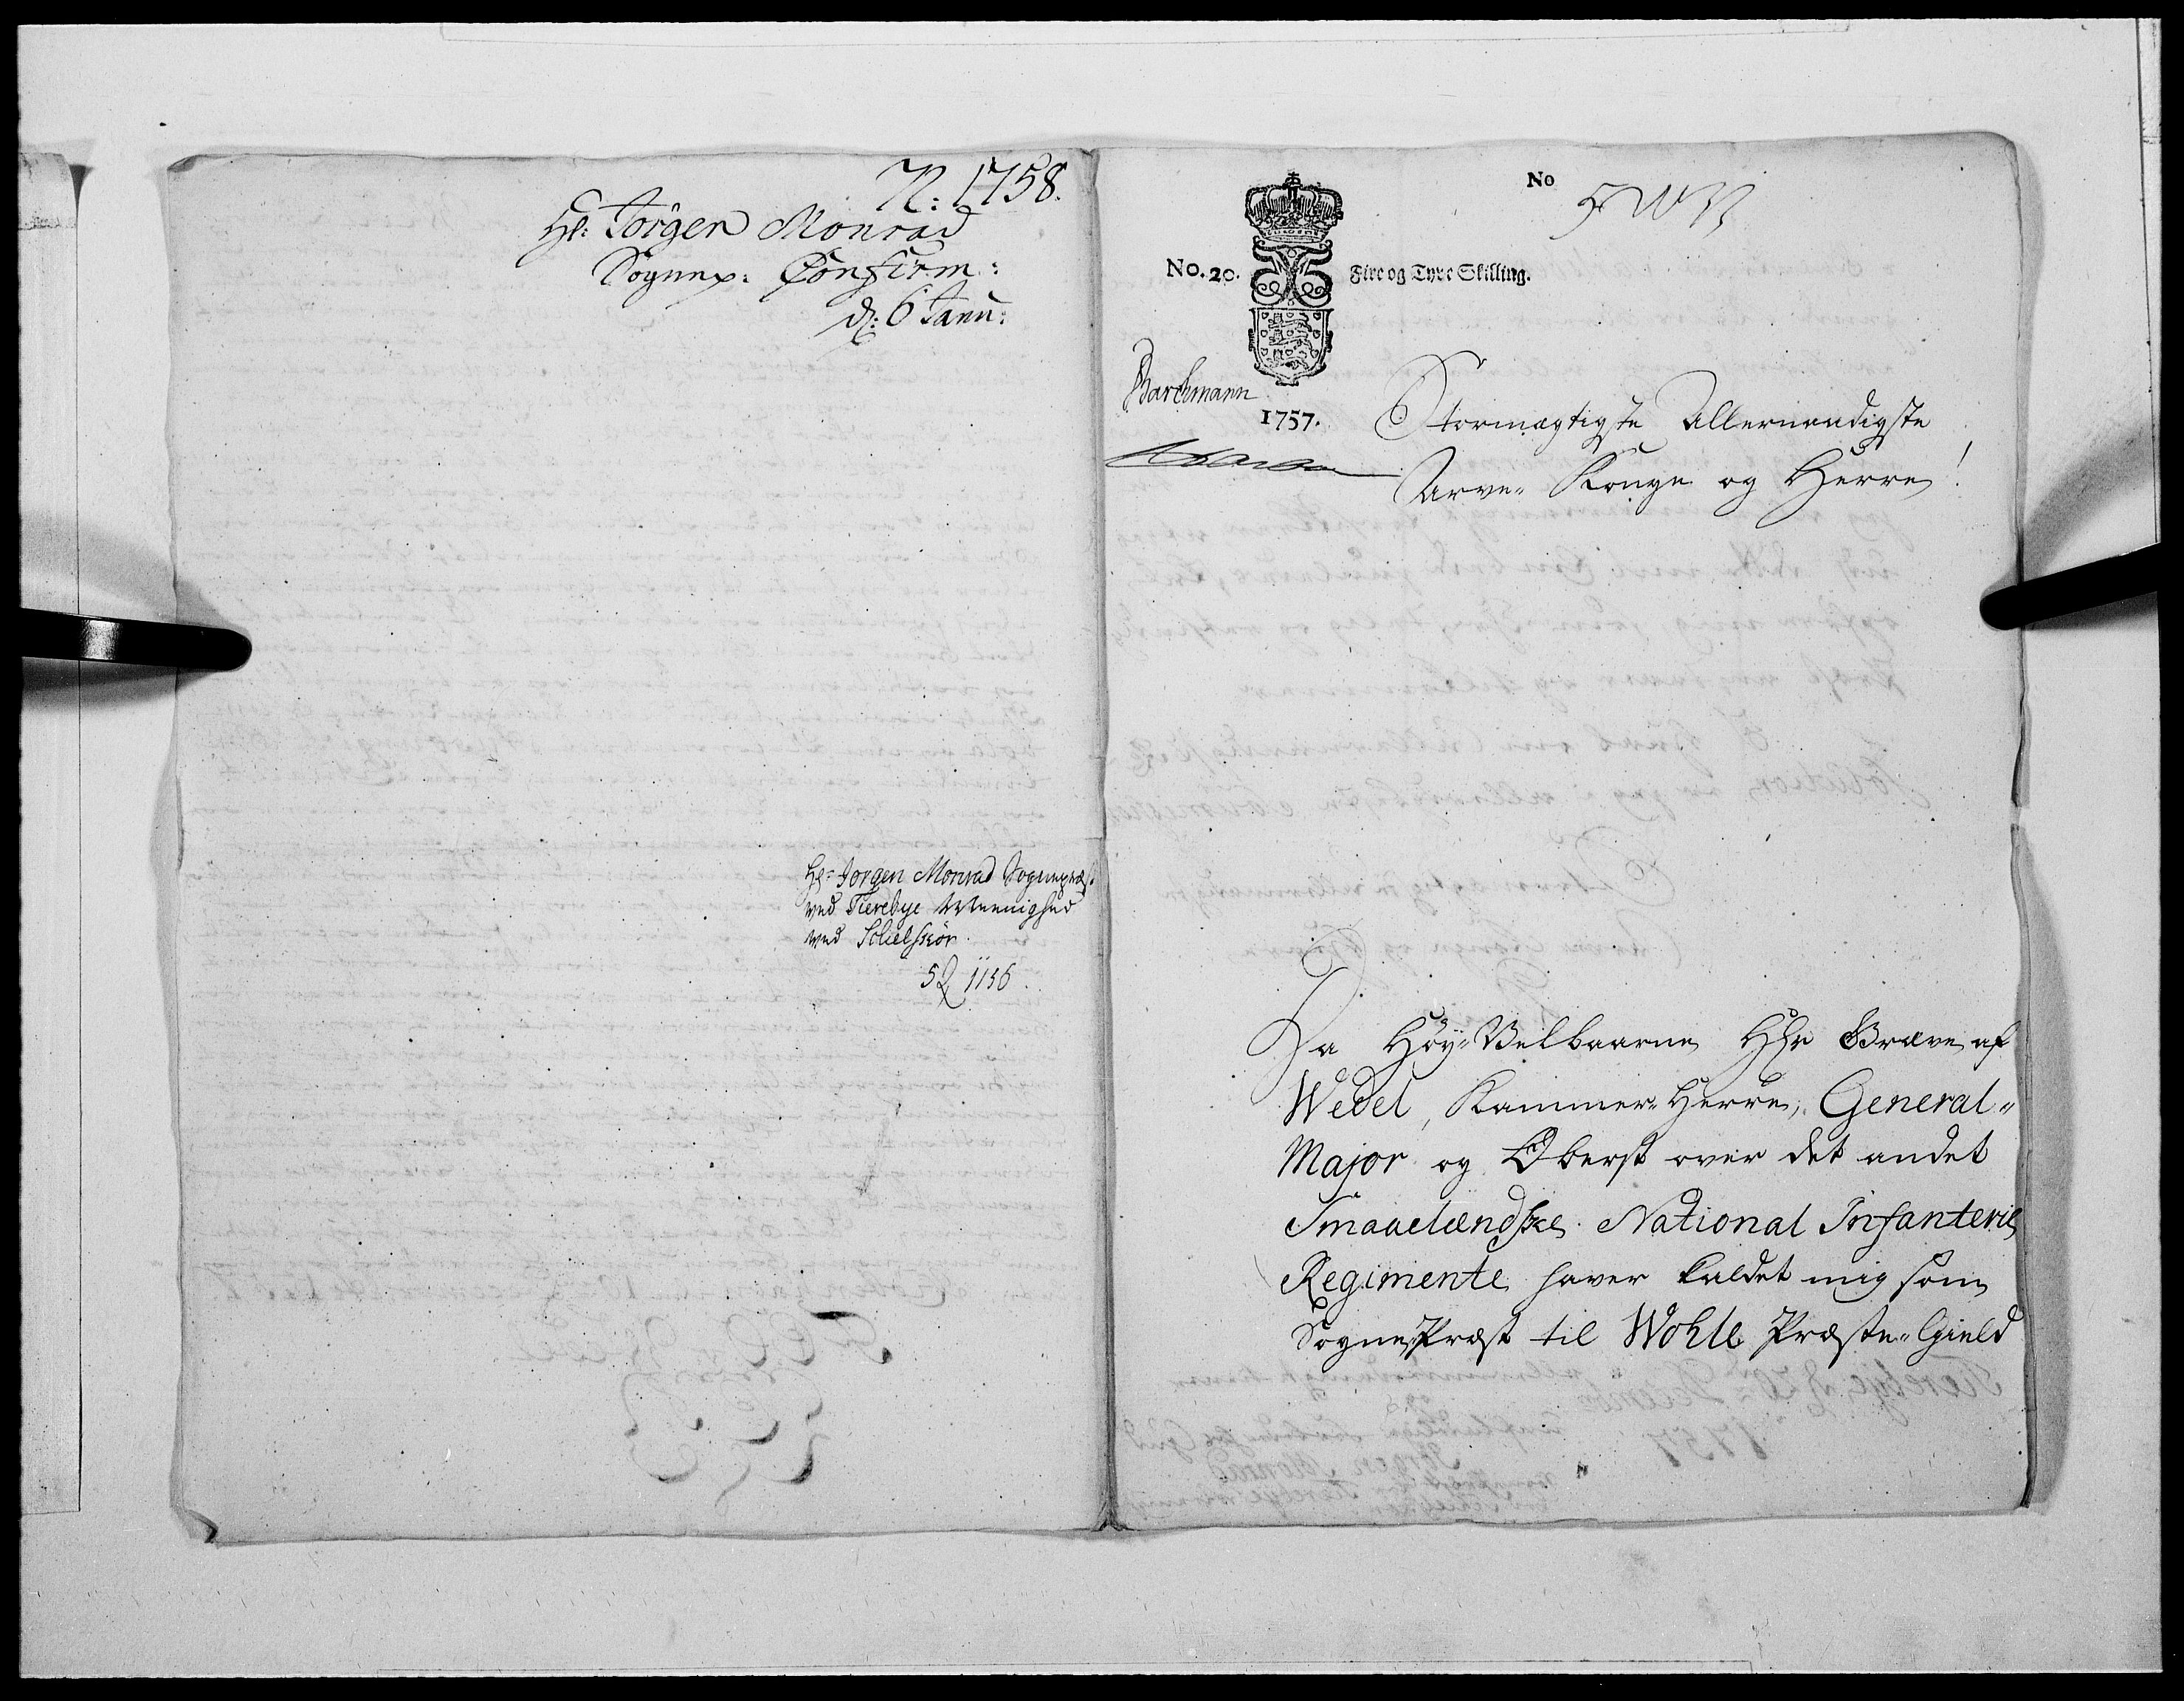 N: 1758.
Hr: Jörgen Monrad
Sognep: Confirm:
d: 6 Janu:
Hr: Jörgen Monrad Sognepræst
ved Tierebye Meenighed
ved Schielskör.
52 1156
No
No. 20. Fire og Tyve Skilling.
Barchmann
1757.
Stormægtigste Allernaadigste
Arve- Konge og Herre!
Da Höy-Velbaarne Hr Græve af
Wedel, Kammer-Herre, General-
Major og Oberst over det andet
Smaalændske National Infanterie
Regimente haver kaldet mig som
Sogne-Præst til Wohle Præste-Gield